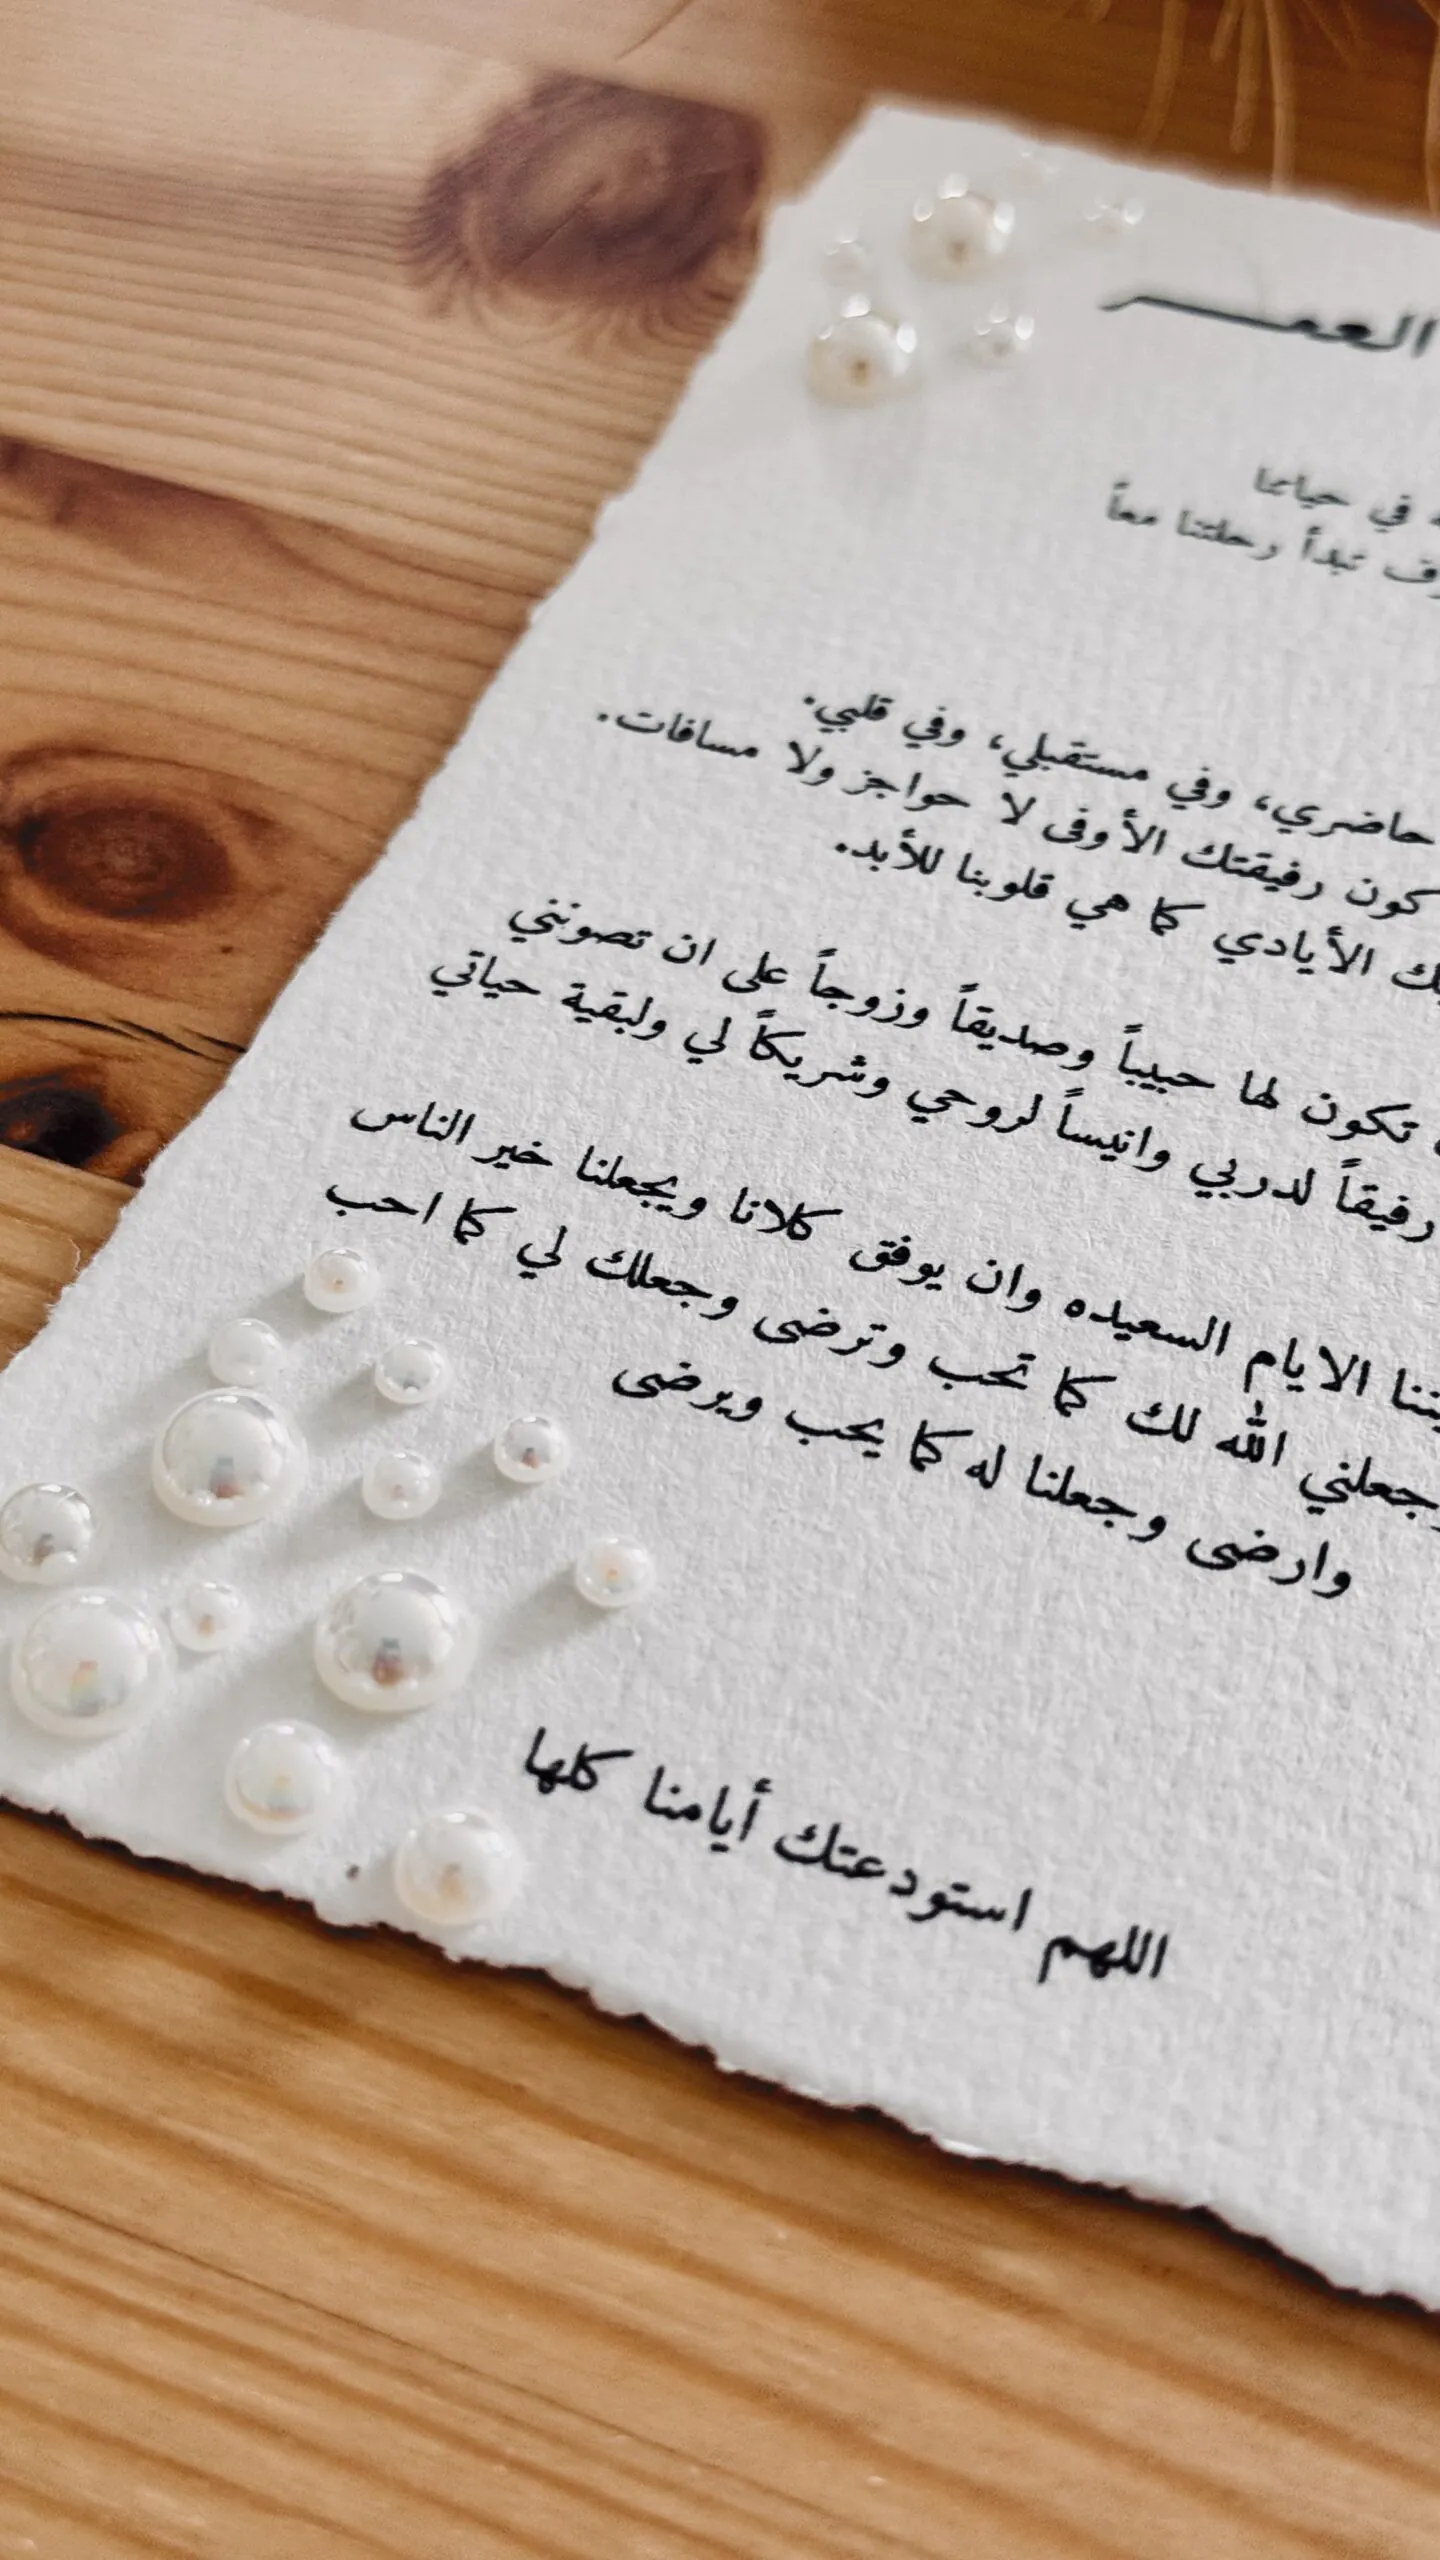 العمر
في حياتنا
تبدأ رحلتنا معاً
حاضري، وفي مستقبلي، وفي قلبي.
كون رفيقتك الأوفى لا حواجز ولا مسافات.
الأيادي كما هي قلوبنا للأبد.
تكون لها حبيباً وصديقاً وزوجاً على ان تصونني
رفيقاً لدربي وانيساً لروحي وشريكاً لي ولبقية حياتي
الايام السعيده وان يوفق كلانا ويجعلنا خير الناس
جعلني الله لك كما تحب وترضى وجعلك لي كما احب
وارضى وجعلنا له كما يحب ويرضى
اللهم استودعتك أيامنا كلها